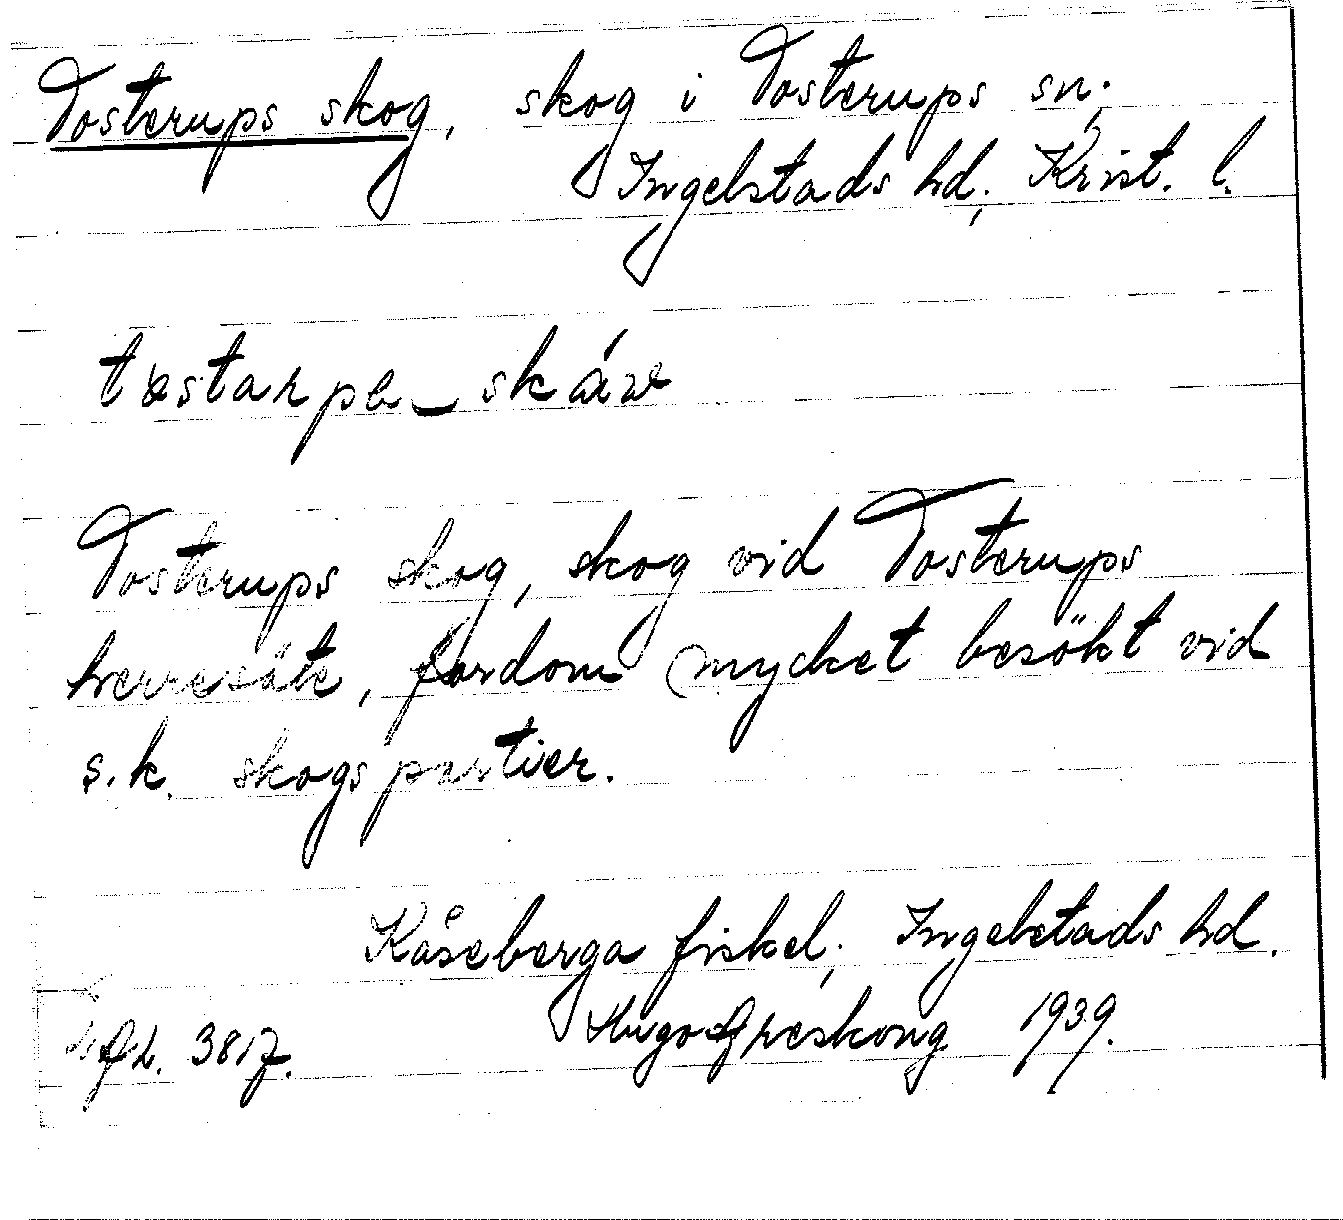 Tosterups skog, skog i Tosterups sn;
Ingelstads hd; Krist. l.
Tosterups skog, skog vid Tosterups
herresäte, fordom mycket besökt vid
s.k. skogspartier.
Kåseberga fiskel; Ingelstads hd.
3817. Hugo Areskoug 1939.